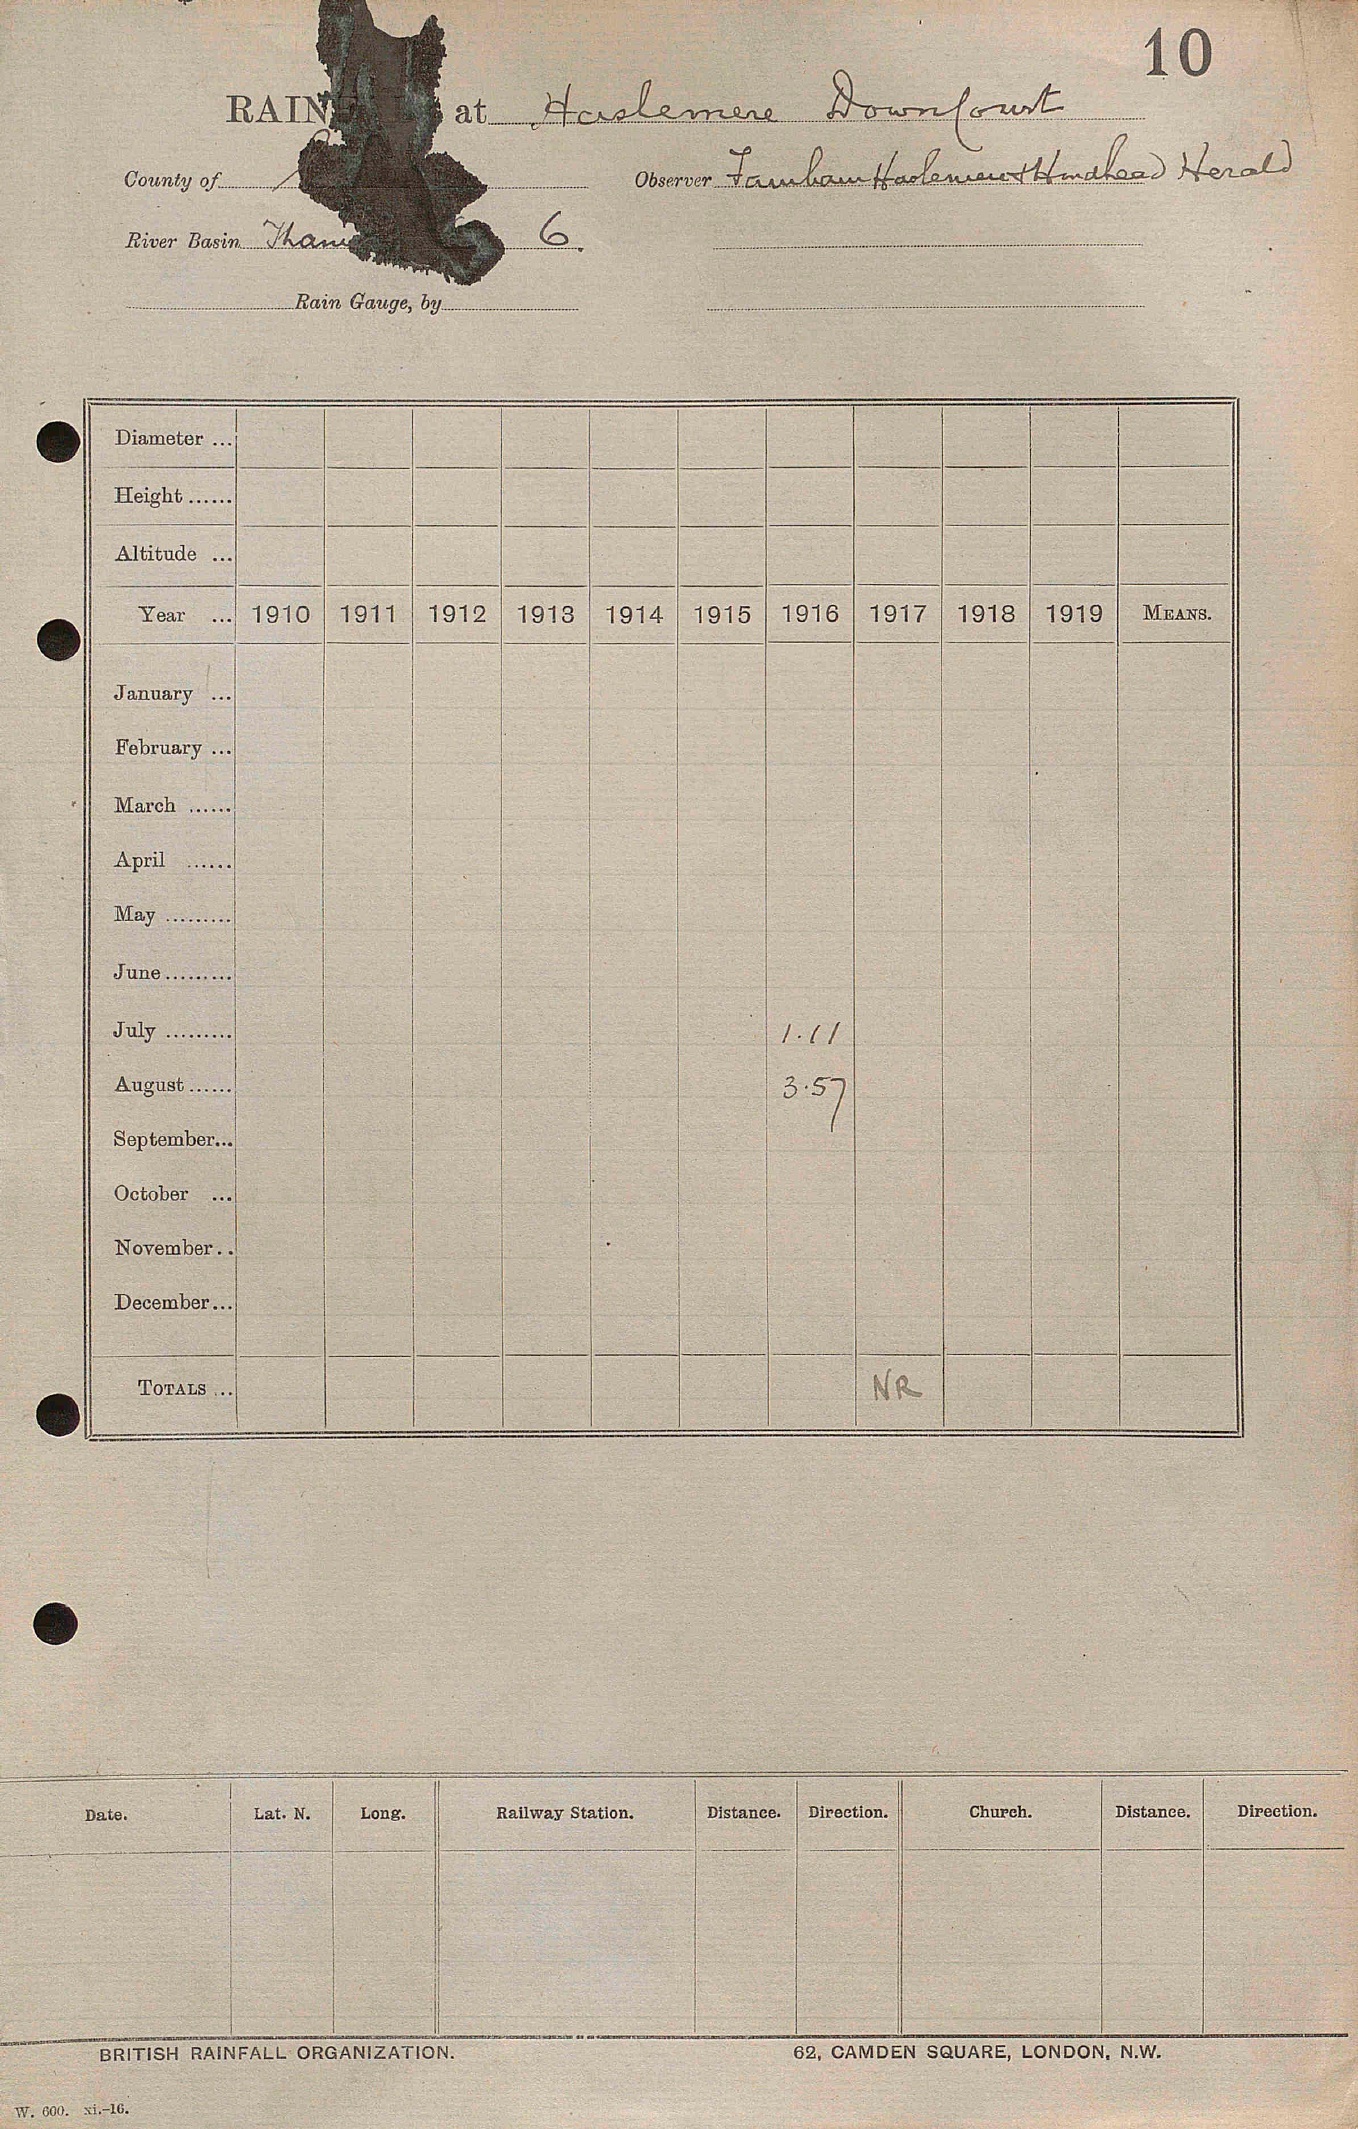 10
at Haslemere DownCourt
County of
Observer Farnham Haslemere & Hindhead Herald
River Basin 6.
Rain Gauge, by
Diameter ...
Height ......
Altitude ...
Year ... 1910 1911 1912 1913 1914 1915 1916 1917 1918 1919 MEANS.
January ...
February ...
March ......
April ......
May .........
June .........
July ......... 1.11
August ...... 3.57
September...
October ...
November..
December...
TOTALS ... NR
Date. Lat. N. Long. Railway Station. Distance. Direction. Church. Distance. Direction.
BRITISH RAINFALL ORGANIZATION. 62, CAMDEN SQUARE, LONDON, N.W.
W. 600. xi.-16.